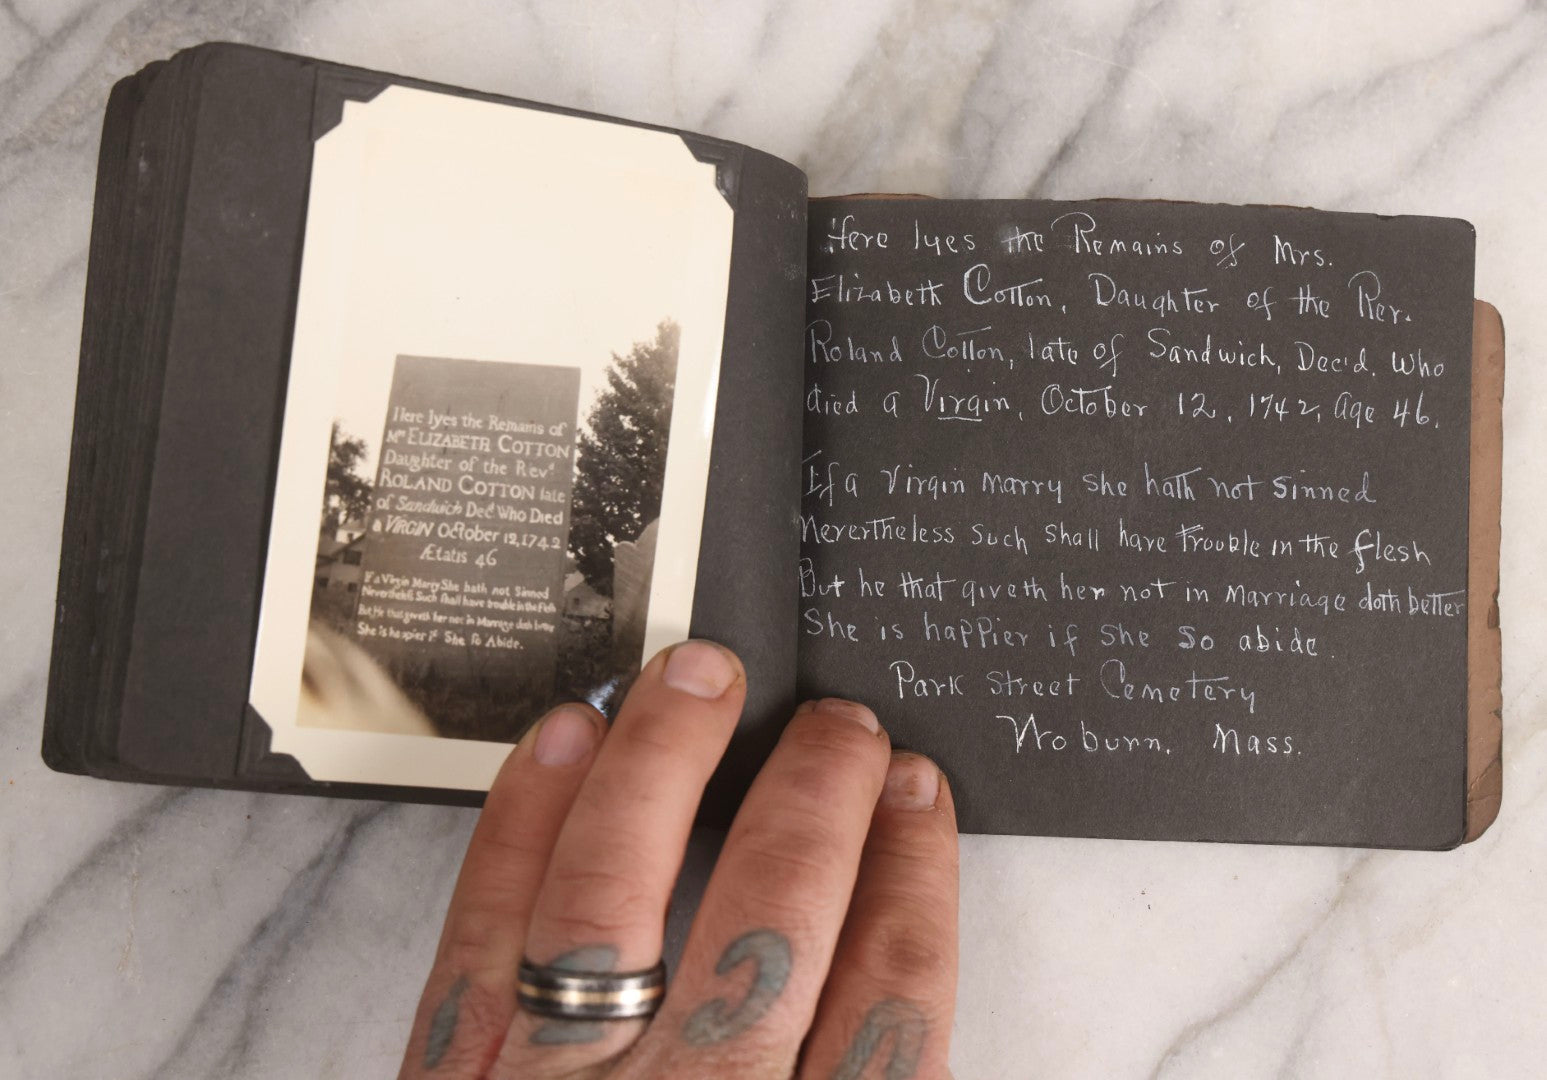 Here lyes the Remains of
Mrs ELIZABETH COTTON
Daughter of the Revd
ROLAND COTTON late
of Sandwich Decd. Who Died
a VIRGIN October 12, 1742
Ætatis 46
If a Virgin Marry She hath not Sinned
Nevertheless Such Shall have trouble in the Flesh
But He that giveth her not in Marriage doth better
She is happier if She So Abide.
Here lyes the Remains of Mrs.
Elizabeth Cotton, Daughter of the Rev.
Roland Cotton, late of Sandwich, Dec'd. Who
died a Virgin, October 12, 1742, age 46.
If a Virgin marry she hath not sinned
Nevertheless such shall have trouble in the flesh
But he that giveth her not in Marriage doth better
She is happier if she so abide.
Park Street Cemetery
Woburn. Mass.